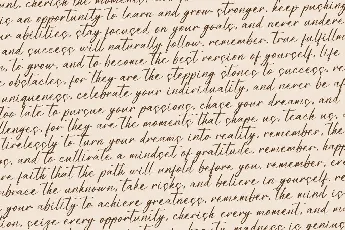 cherish the moments,
is an opportunity to learn and grow stronger. keep pushing
ur abilities, stay focused on your goals, and never undere
and success will naturally follow. remember, true fulfillm
n, to grow, and to become the best version of yourself. life
e obstacles, for they are the stepping stones to success. re
uniqueness, celebrate your individuality, and never be af
too late to pursue your passions, chase your dreams, and
llenges, for they are the moments that shape us, teach us,
tirelessly to turn your dreams into reality. remember, the
s, and to cultivate a mindset of gratitude. remember, happ
ve faith that the path will unfold before you. remember, cr
mbrace the unknown, take risks, and believe in yourself. re
your ability to achieve greatness. remember, the mind is
ion, seize every opportunity, cherish every moment, and m
remember, the
madness is genius